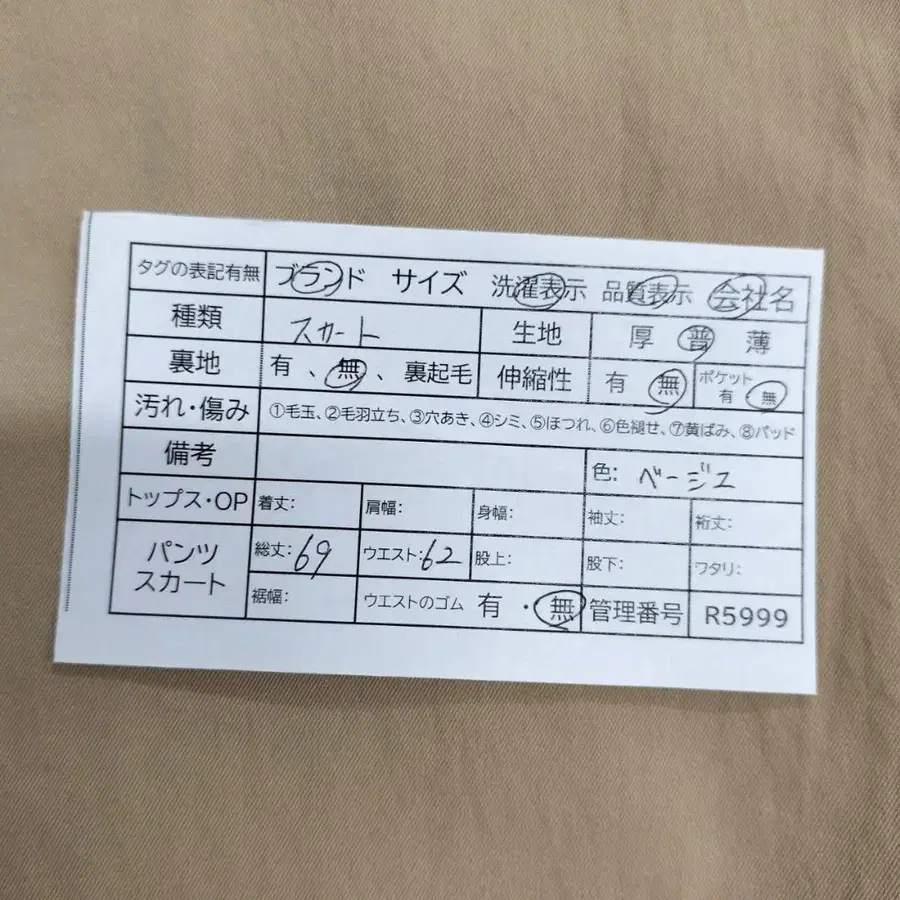 タグの表記有無 ブランド サイズ 洗濯表示 品質表示 会社名
種類 スカート 生地 厚 普 薄
裏地 有、無、裏起毛 伸縮性 有 無 ポケット 有 無
汚れ・傷み ①毛玉、②毛羽立ち、③穴あき、④シミ、⑤ほつれ、⑥色褪せ、⑦黄ばみ、⑧パッド
備考 色: ベージュ
トップス・OP 着丈: 肩幅: 身幅: 袖丈: 裄丈:
パンツ スカート 総丈: 69 ウエスト: 62 股上: 股下: ワタリ:
裾幅: ウエストのゴム 有・無 管理番号 R5999